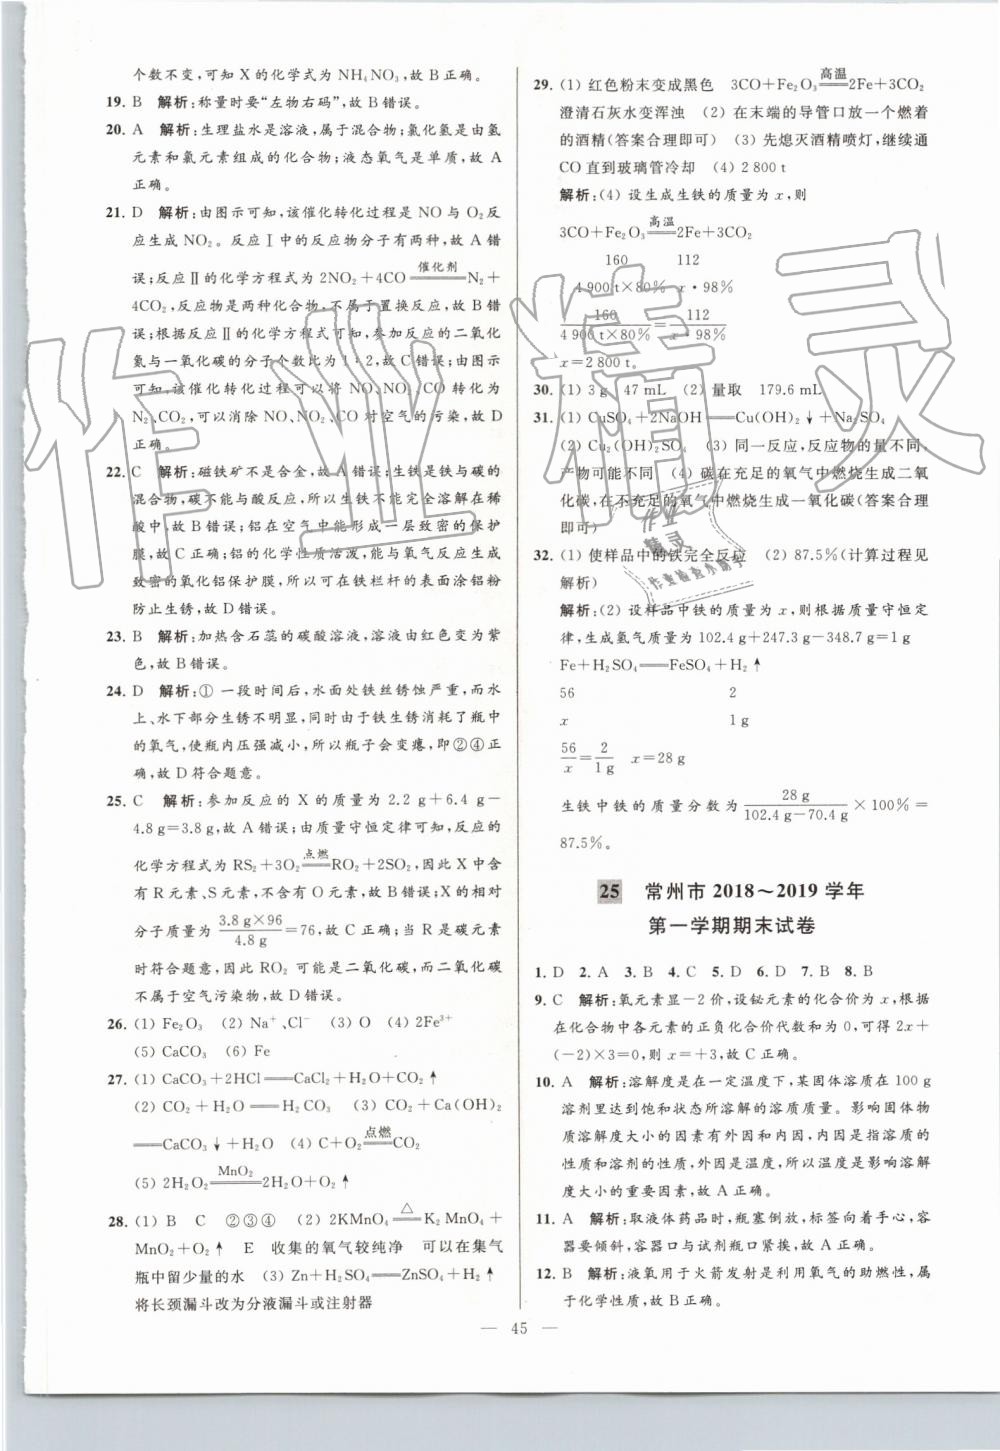 个数不变,可知 X 的化学式为 NH₄NO₃,故 B 正确。
19. B 解析:称量时要“左物右码”,故 B 错误。
20. A 解析:生理盐水是溶液,属于混合物;氯化氢是由氢
元素和氯元素组成的化合物;液态氧气是单质,故 A
正确。
21. D 解析:由图示可知,该催化转化过程是 NO 与 O₂ 反
应生成 NO₂。反应Ⅰ中的反应物分子有两种,故 A 错
误;反应Ⅱ的化学方程式为 2NO₂+4CO══(催化剂)N₂+
4CO₂,反应物是两种化合物,不属于置换反应,故 B 错
误;根据反应Ⅱ的化学方程式可知,参加反应的二氧化
氮与一氧化碳的分子个数比为 1∶2,故 C 错误;由图示
可知,该催化转化过程可以将 NO、NO₂、CO 转化为
N₂、CO₂,可以消除 NO、NO₂、CO 对空气的污染,故 D
正确。
22. C 解析:磁铁矿不是合金,故 A 错误;生铁是铁与碳的
混合物,碳不能与酸反应,所以生铁不能完全溶解在稀
酸中,故 B 错误;铝在空气中能形成一层致密的保护
膜,故 C 正确;铝的化学性质活泼,能与氧气反应生成
致密的氧化铝保护膜,所以可以在铁栏杆的表面涂铝粉
防止生锈,故 D 错误。
23. B 解析:加热含石蕊的碳酸溶液,溶液由红色变为紫
色,故 B 错误。
24. D 解析:① 一段时间后,水面处铁丝锈蚀严重,而水
上、水下部分生锈不明显,同时由于铁生锈消耗了瓶中
的氧气,使瓶内压强减小,所以瓶子会变瘪,即②④正
确,故 D 符合题意。
25. C 解析:参加反应的 X 的质量为 2.2 g+6.4 g-
4.8 g=3.8 g,故 A 错误;由质量守恒定律可知,反应的
化学方程式为 RS₂+3O₂══(点燃)RO₂+2SO₂,因此 X 中含
有 R 元素、S 元素,不含有 O 元素,故 B 错误;X 的相对
分子质量为 3.8 g×96/4.8 g=76,故 C 正确;当 R 是碳元素
时符合题意,因此 RO₂ 可能是二氧化碳,而二氧化碳
不属于空气污染物,故 D 错误。
26. (1) Fe₂O₃ (2) Na⁺、Cl⁻ (3) O (4) 2Fe³⁺
(5) CaCO₃ (6) Fe
27. (1) CaCO₃+2HCl══CaCl₂+H₂O+CO₂↑
(2) CO₂+H₂O══H₂CO₃ (3) CO₂+Ca(OH)₂
══CaCO₃↓+H₂O (4) C+O₂══(点燃)CO₂
(5) 2H₂O₂══(MnO₂)2H₂O+O₂↑
28. (1) B C ②③④ (2) 2KMnO₄══(△)K₂MnO₄+
MnO₂+O₂↑ E 收集的氧气较纯净 可以在集气
瓶中留少量的水 (3) Zn+H₂SO₄══ZnSO₄+H₂↑
将长颈漏斗改为分液漏斗或注射器
29. (1) 红色粉末变成黑色 3CO+Fe₂O₃══(高温)2Fe+3CO₂
澄清石灰水变浑浊 (2) 在末端的导管口放一个燃着
的酒精(答案合理即可) (3) 先熄灭酒精喷灯,继续通
CO 直到玻璃管冷却 (4) 2 800 t
解析:(4) 设生成生铁的质量为 x,则
3CO+Fe₂O₃══(高温)2Fe+3CO₂
160 112
4 900 t×80% x·98%
160/(4 900 t×80%)=112/(x·98%)
x=2 800 t。
30. (1) 3 g 47 mL (2) 量取 179.6 mL
31. (1) CuSO₄+2NaOH══Cu(OH)₂↓+Na₂SO₄
(2) Cu₂(OH)₂SO₄ (3) 同一反应,反应物的量不同,
产物可能不同 (4) 碳在充足的氧气中燃烧生成二氧
化碳,在不充足的氧气中燃烧生成一氧化碳(答案合理
即可)
32. (1) 使样品中的铁完全反应 (2) 87.5%(计算过程见
解析)
解析:(2) 设样品中铁的质量为 x,则根据质量守恒定
律,生成氢气质量为 102.4 g+247.3 g-348.7 g=1 g
Fe+H₂SO₄══FeSO₄+H₂↑
56 2
x 1 g
56/x=2/1 g x=28 g
生铁中铁的质量分数为 28 g/(102.4 g-70.4 g)×100%=
87.5%。
25 常州市 2018~2019 学年
第一学期期末试卷
1. D 2. A 3. B 4. C 5. D 6. D 7. B 8. B
9. C 解析:氧元素显-2 价,设铋元素的化合价为 x,根据
在化合物中各元素的正负化合价代数和为 0,可得 2x+
(-2)×3=0,则 x=+3,故 C 正确。
10. A 解析:溶解度是在一定温度下,某固体溶质在 100 g
溶剂里达到饱和状态所溶解的溶质质量。影响固体物
质溶解度大小的因素有外因和内因,内因是指溶质的
性质和溶剂的性质,外因是温度,所以温度是影响溶解
度大小的重要因素,故 A 正确。
11. A 解析:取液体药品时,瓶塞倒放,标签向着手心,容
器要倾斜,容器口与试剂瓶口紧挨,故 A 正确。
12. B 解析:液氧用于火箭发射是利用氧气的助燃性,属
于化学性质,故 B 正确。
— 45 —
作业精灵
精灵
作业检查小助手